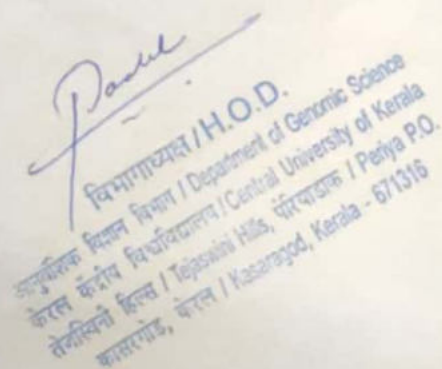 विभागाध्यक्ष / H.O.D.
आनुवंशिक विज्ञान विभाग / Department of Genomic Science
केरल केंद्रीय विश्वविद्यालय / Central University of Kerala
तेजस्विनी हिल्स / Tejaswini Hills, पेरियाडाक / Periya P.O.
कासरगोड, केरल / Kasaragod, Kerala - 671316